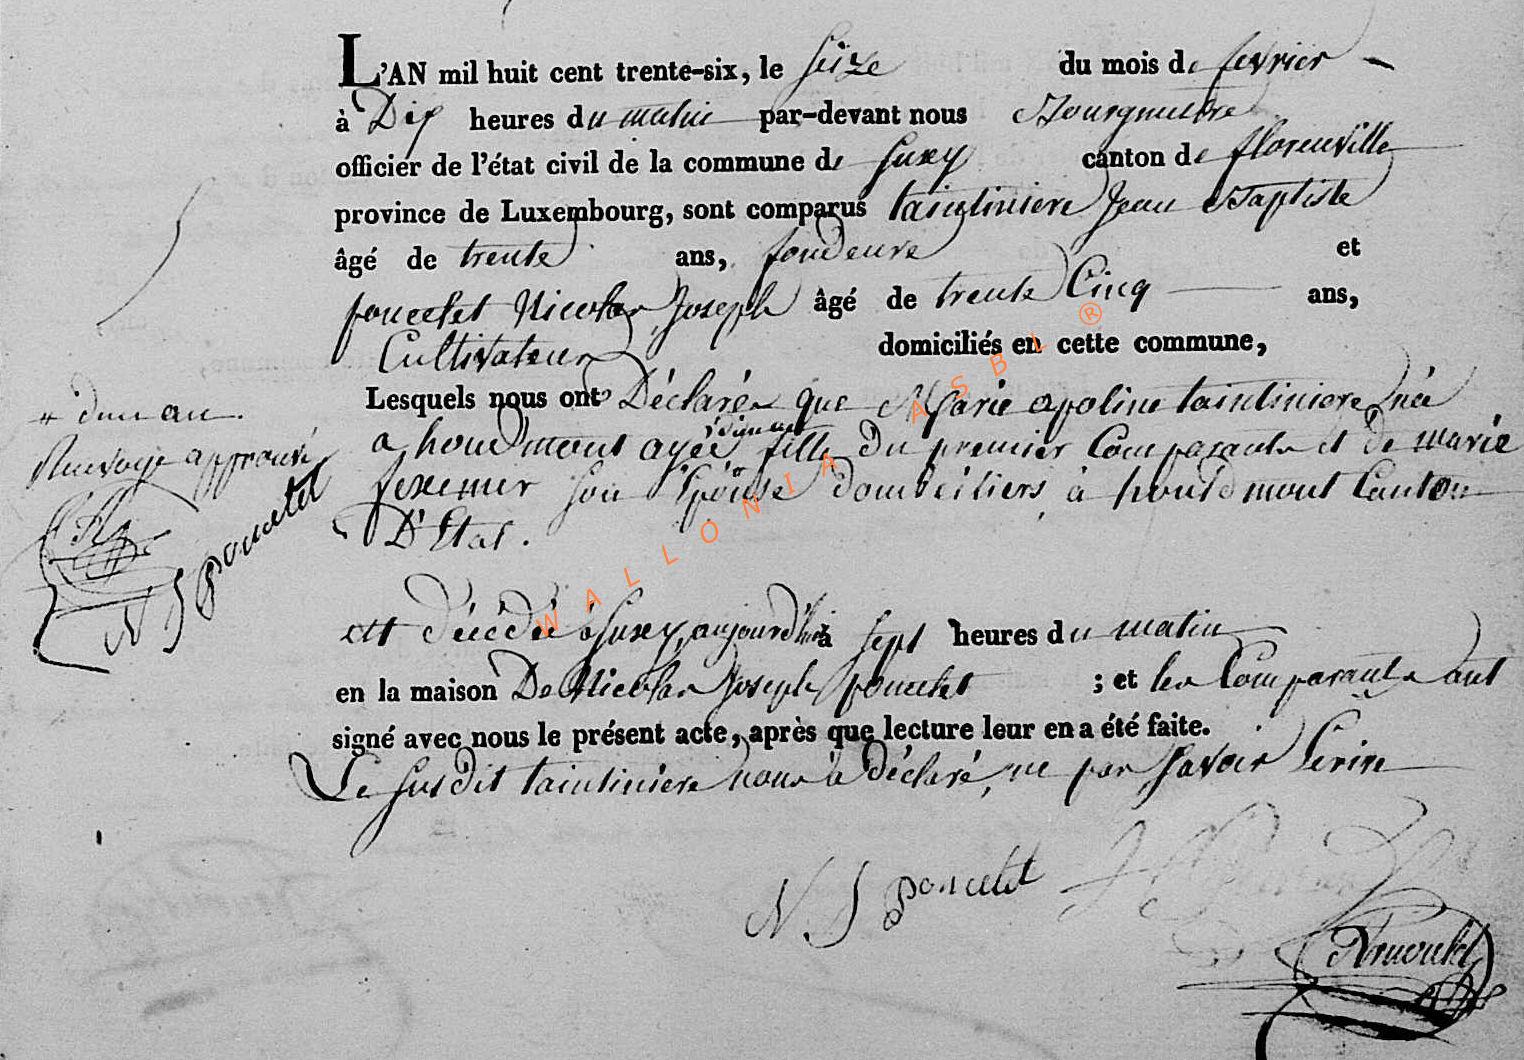 L'AN mil huit cent trente-six, le seize du mois de fevrier
à Dix heures du matin par-devant nous Bourgmestre
officier de l'état civil de la commune de Suxy canton de florenville
province de Luxembourg, sont comparus taintiniere Jean Baptiste
âgé de trente ans, fondeure et
poncelet Nicolas Joseph âgé de trente Cinq ans,
Cultivateur domiciliés en cette commune,
Lesquels nous ont Déclarés que Marie apoline taintiniere née
a houdmont agée fille Du premier Comparants et De marie
son Epouse domiciliers à houdmont Canton
D'Etal.
est décédée à Suxy, aujourd'hui à sept heures du matin
en la maison De Nicolas Joseph poncelet ; et les Comparants ont
signé avec nous le présent acte, après que lecture leur en a été faite.
Le susdit taintiniere nous a déclaré, ne pas savoir Ecrire
" d'un an.
Renvoye approuvé
N J Poncelet
N. J Poncelet
Arnould
WALLONIA ASBL ®